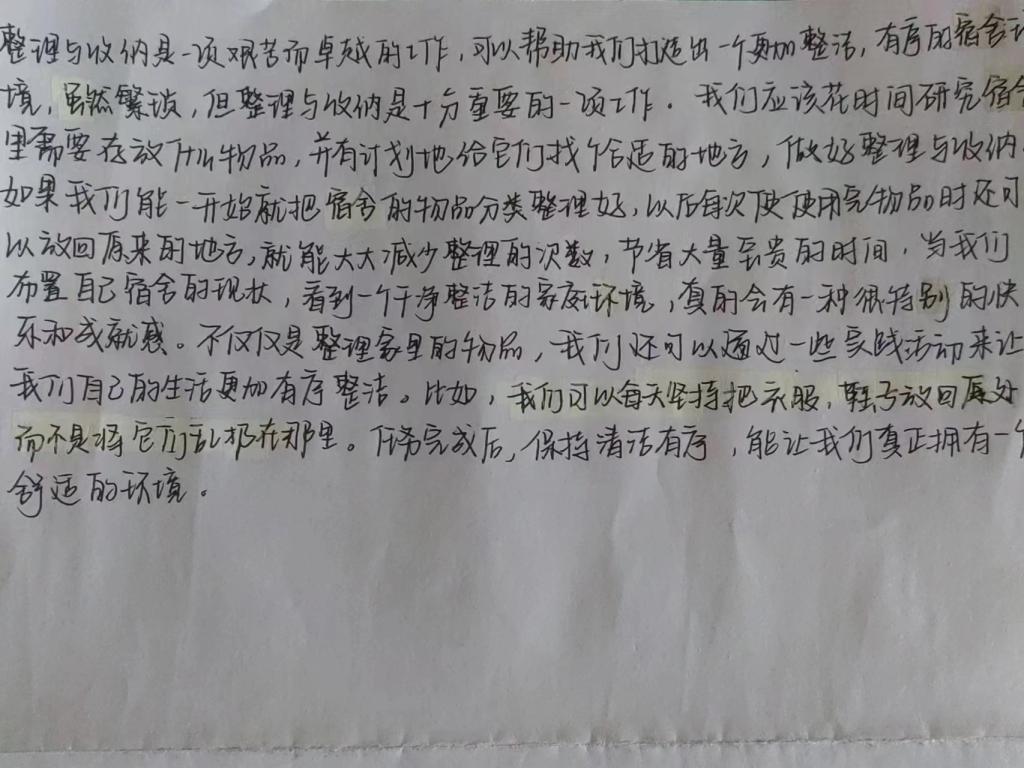 整理与收纳是一项艰苦而卓越的工作，可以帮助我们打造出一个更加整洁，有序的宿舍
境，虽然繁琐，但整理与收纳是十分重要的一项工作。我们应该花时间研究宿舍
里需要存放什么物品，并有计划地给它们找个合适的地方，做好整理与收纳。
如果我们能一开始就把宿舍的物品分类整理好，以后每次使使用完物品时还可
以放回原来的地方，就能大大减少整理的次数，节省大量宝贵的时间，当我们
布置自己宿舍的现状，看到一个干净整洁的家庭环境，真的会有一种很特别的快
乐和成就感。不仅仅是整理家里的物品，我们还可以通过一些实践活动来让
我们自己的生活更加有序整洁。比如，我们可以每天坚持把衣服，鞋子放回原处
而不是将它们乱扔在那里。任务完成后，保持清洁有序，能让我们真正拥有一个
舒适的环境。